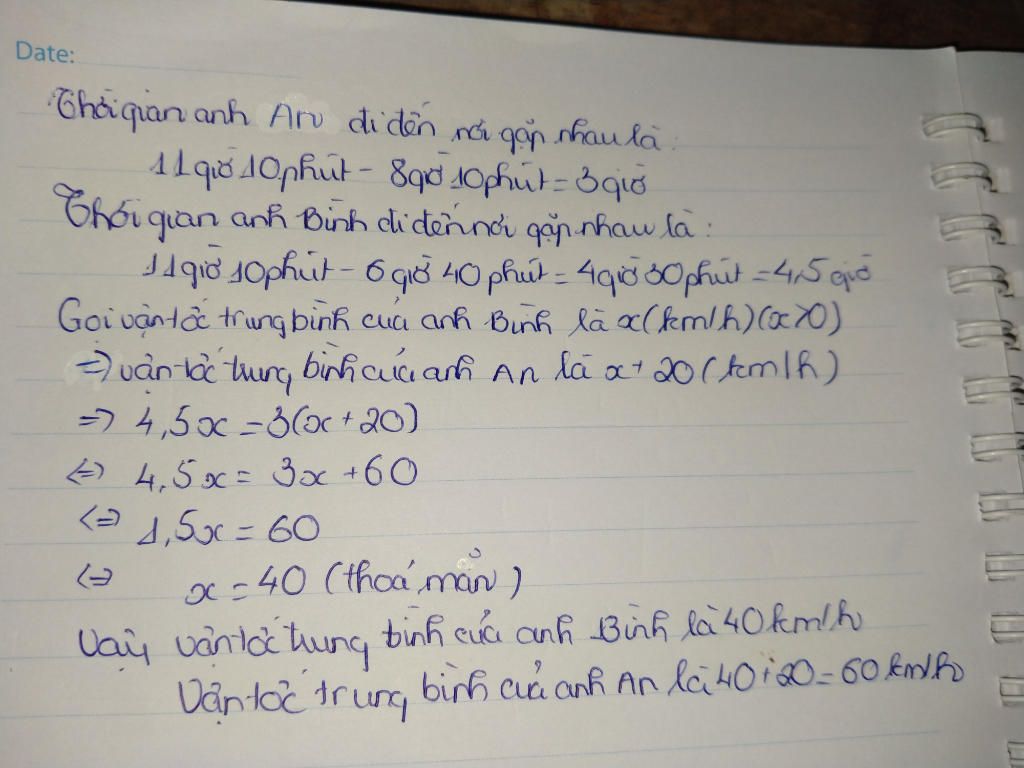 Date:
Thời gian anh An đi đến nơi gặp nhau là:
11 giờ 10 phút - 8 giờ 10 phút = 3 giờ
Thời gian anh Bình đi đến nơi gặp nhau là:
11 giờ 10 phút - 6 giờ 40 phút = 4 giờ 30 phút = 4,5 giờ
Gọi vận tốc trung bình của anh Bình là x (km/h) (x>0)
=> vận tốc trung bình của anh An là x + 20 (km/h)
=> 4,5x = 3(x + 20)
<=> 4,5x = 3x + 60
<=> 1,5x = 60
<=> x = 40 (thoả mãn)
Vậy vận tốc trung bình của anh Bình là 40 km/h
Vận tốc trung bình của anh An là 40 + 20 = 60 km/h